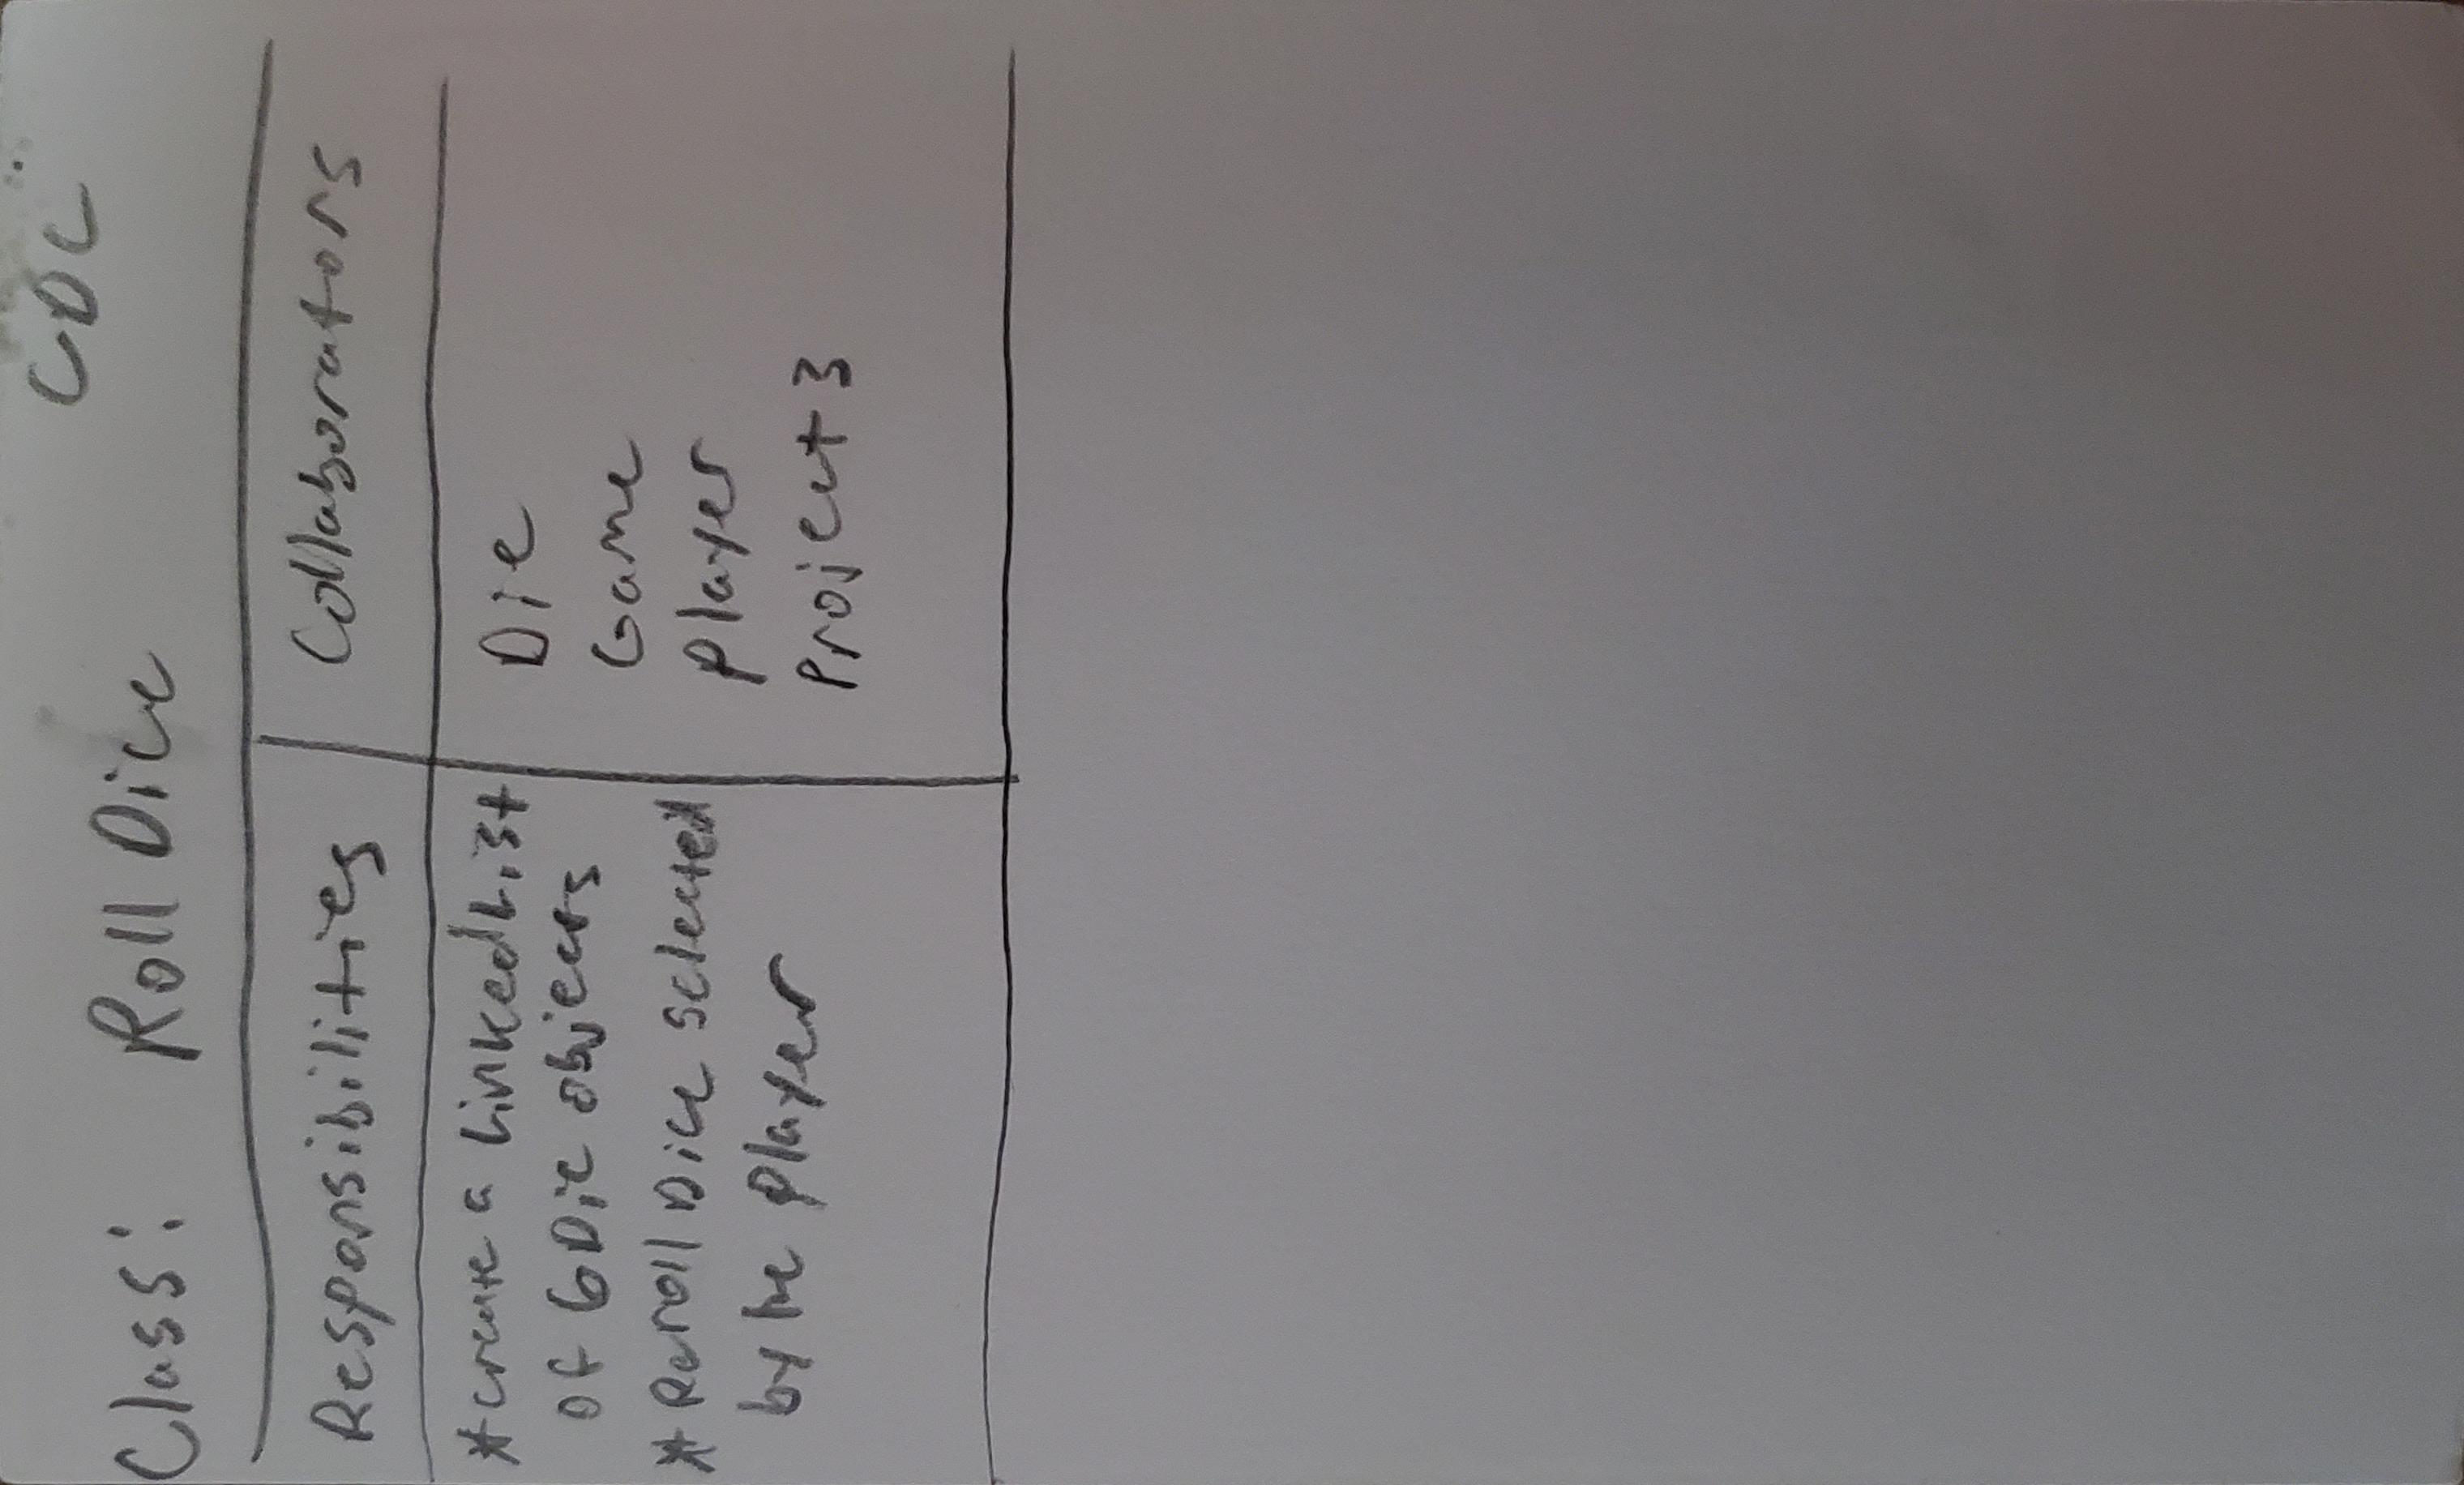 CDC
Class: Roll Dice
Responsibilities
Collaborators
* create a LinkedList
of 6 Die objects
* Reroll Dice selected
by the player
Die
Game
player
Project 3